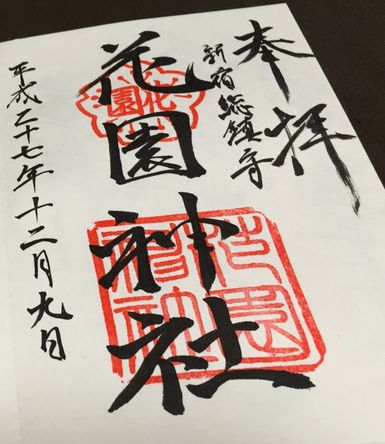 奉拝
新宿総鎮守
花園神社
花園
花園神社
平成二十七年十二月九日